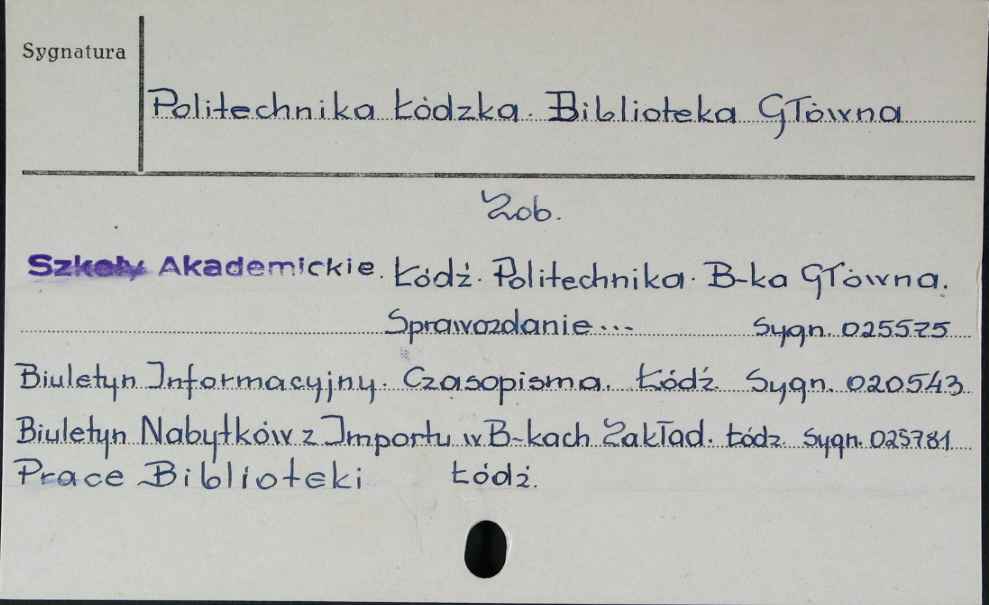 Sygnatura
Politechnika Łódzka. Biblioteka Główna
Zob.
Szkoły Akademickie. Łódź. Politechnika. B-ka Główna.
Sprawozdanie... Sygn. 025575
Biuletyn Informacyjny. Czasopisma. Łódź. Sygn. 020543
Biuletyn Nabytków z Importu w B-kach Zakład. Łódz. Sygn. 025781
Prace Biblioteki Łódź.